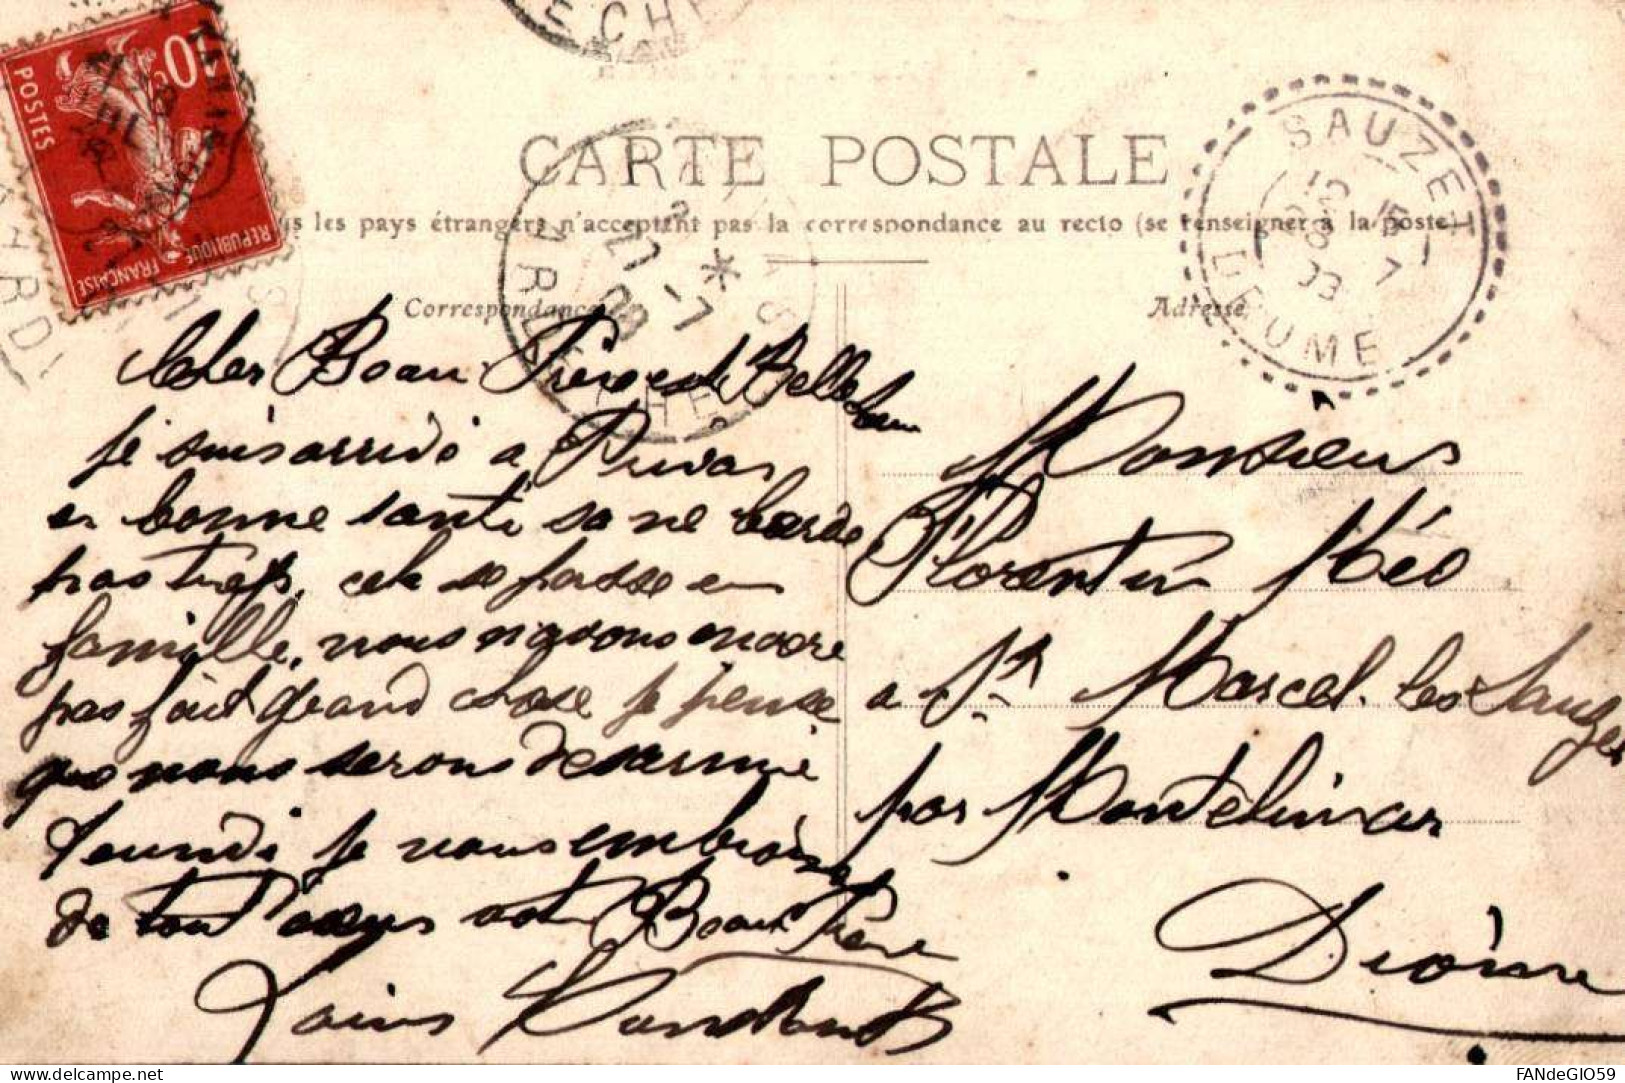 10
POSTES
REPUBLIQUE FRANÇAISE
ECHE
CARTE POSTALE
les pays étrangers n'acceptent pas la correspondance au recto (se renseigner à la poste)
SAUZET
DROME
ARDECHE
27-7
08
Correspondance
Adresse
Cher Beau Frère et Belle
je suis arrivé a Privas
en bonne santé sa ne barde
pas trop, cela se passe en
famille, nous navons encore
pas fait grand chose je pense
que nous serons desarmé
Lundi je vous embrasse
de tout cœur votre Beau Frère
Monsieur
Florentin Méo
a St Marcel les Sauzet
par Montelimar
Drôme
FANdeGIO59